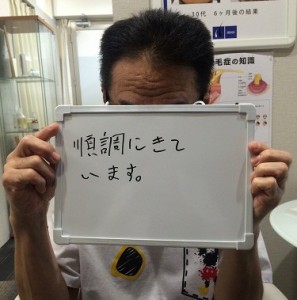 30代 6ヶ月後の結果
毛症の知識
順調にきて
います。